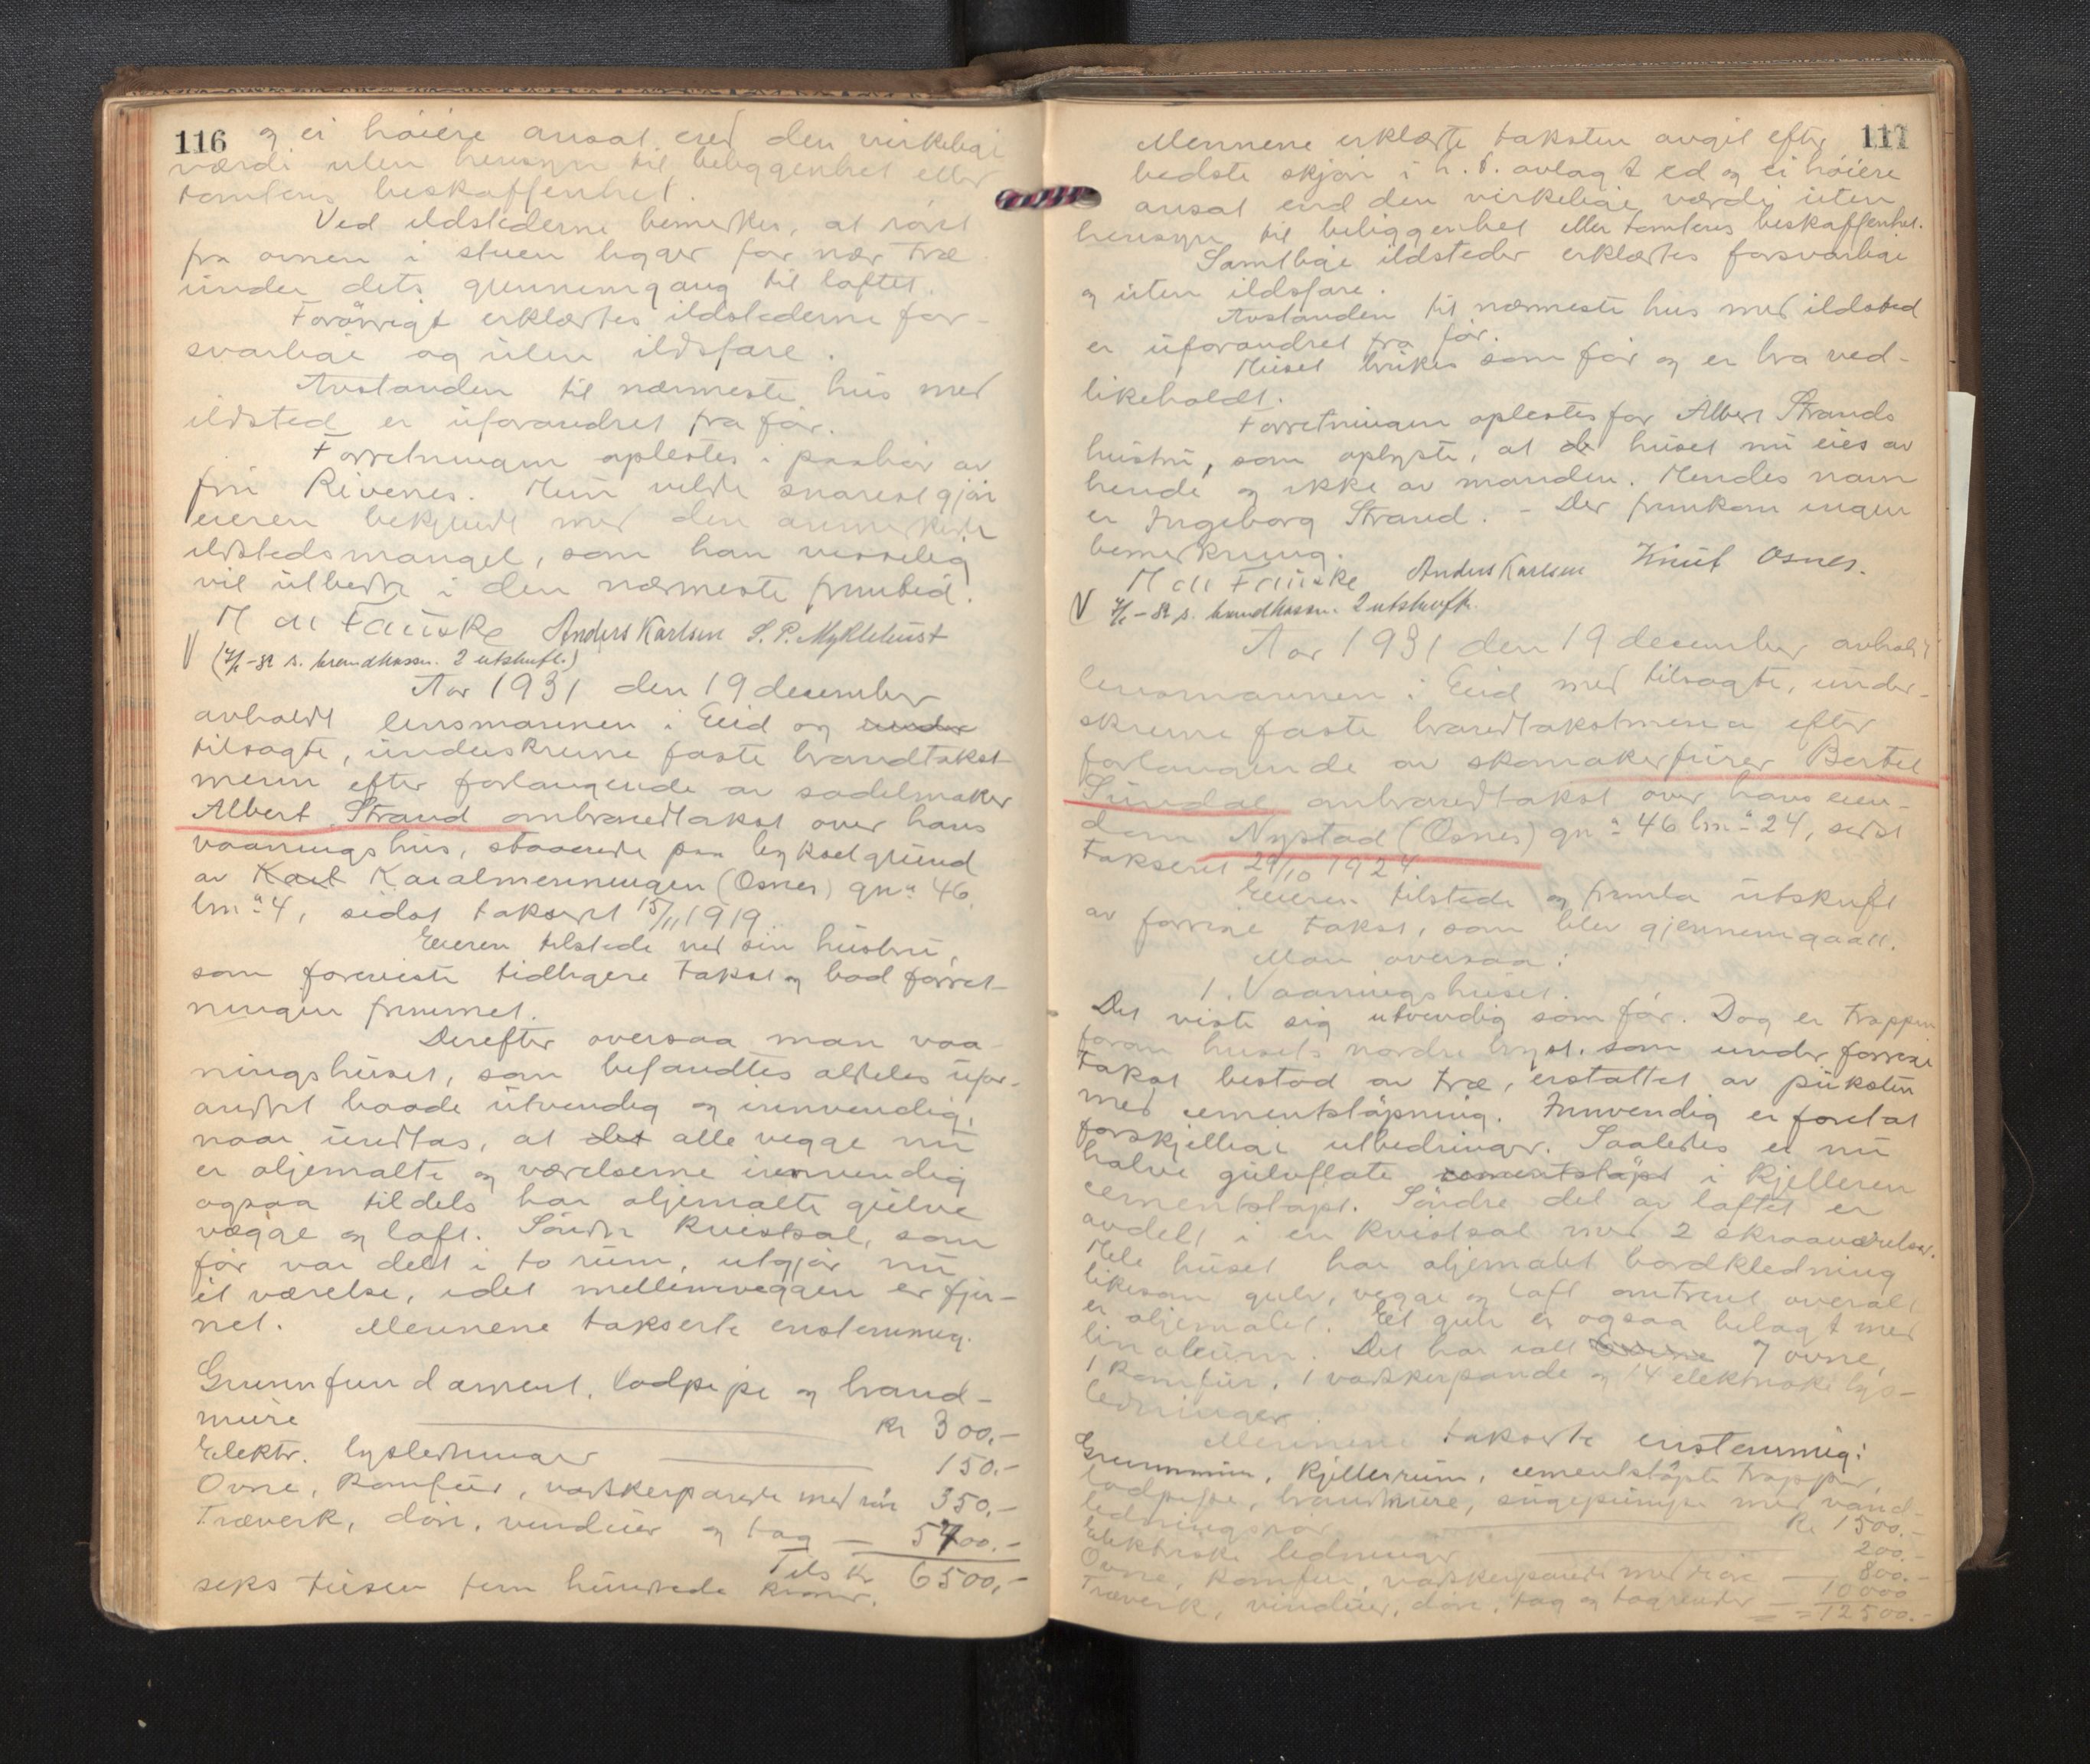 116
og ei høiere ansat end den virkelige
værdi uten hensyn til beliggenhet eller
tomtens beskaffenhet.
Ved ildstederne bemerkes, at røret
fra ovnen i stuen ligger for nær træ
under dets gjennemgang til loftet.
Forøvrigt erklærtes ildstederne for-
svarlige og uten ildsfare.
Avstanden til nærmeste hus med
ildsted er uforandret fra før.
Forretningen oplæstes i paahør av
fru Rivenes. Hun vilde snarest gjøre
eieren bekjendt med den anmerkede
ildstedsmangel, som han visselig
vil utbedre i den nærmeste fremtid.
M all Fauske Anders Karlsen S. P. Myklebust
V (7/1-32 s. brandkassen. 2 utskrift.)
Aar 1931 den 19 december
avholdt lensmannen i Eid og under
tilsagte, underskrevne faste brandtakst
menn efter forlangende av sadelmaker
Albert Strand ombrandtakst over hans
vaaningshus, staaende paa bykselgrund
av Kart Kaialmenningen (Osnes) gnr. 46
bnr. 4, sidst taksert 15/11 1919.
Eieren tilstede ved sin hustru,
som foreviste tidligere takst og bad forret-
ningen fremmet.
Derefter oversaa man vaa-
ningshuset, som befandtes aldeles ufor-
andret baade utvendig og innvendig,
naar undtas, at det alle vegge nu
er oljemalte og værelserne innvendig
ogsaa tildels har oljemalte gulve
vægge og loft. Søndre kvistsal, som
før var delt i to rum, utgjør nu
et værelse, idet mellemveggen er fjer-
net. Mennene takserte enstemmig.
Grunnfundament, lodpipe og brand-
mure kr 300.-
Elektr. lysledninger 150.-
Ovne, komfur, vaskerpande med rør 350.-
Træverk, døre, vinduer og tag 5700.-
Tils kr 6500,-
seks tusen fem hundrede kroner.
117
Mennene erklærte taksten avgit efter
bedste skjøn i h. t. avlagt ed og ei høiere
ansat end den virkelige værdi uten
hensyn til beliggenhet eller tomtens beskaffenhet.
Samtlige ildsteder erklærtes forsvarlige
og uten ildsfare.
Avstanden til nærmeste hus med ildsted
er uforandret fra før.
Huset brukes som før og er bra ved-
likeholdt.
Forretningen oplæstes for Albert Strands
hustru, som oplyste, at de huset nu eies av
hende og ikke av manden. Hendes navn
er Ingeborg Strand. - Der fremkom ingen
bemerkning.
M all Fauske Anders Karlsen Knut Osnes.
V 7/1-32 s. brandkassen. 2 utskrift.
Aar 1931 den 19 december avholdt
lensmannen i Eid med tilsagte, under-
skrevne faste brandtakstmenn efter
forlangende av skomakerfurer Bertel
Sundal ombrandtakst over hans eien-
dom Nystad (Osnes) gnr. 46 bnr. 24, sidst
taksert 29/10 1924.
Eieren tilstede og fremla utskrift
av forrige takst, som blev gjennemgaatt.
Man oversaa:
1. Vaaningshuset.
Det viste sig utvendig som før. Dog er trappen
foran husets nordre bryst, som under forrige
takst bestod av træ, erstattet av puksten
med cementstøpning. Innvendig er foretat
forskjellige utbedringer. Saaledes er nu
halve gulvflate cementstøpt i kjelleren
cementstøpt. Søndre del av loftet er
avdelt i en kvistsal med 2 skraaværelser.
Hele huset har oljemalet bordkledning
likesom gulv, vegge og loft omtrent overalt
er oljemalet. Et gulv er ogsaa belagt med
linoleum. Det har ialt 7 ovne,
1 komfur, 1 vaskerpande og 14 elektriske lys-
ledninger.
Mennene takserte enstemmig:
Grunnmur, kjellerrum, cementstøpte trapper,
lodpipe, brandmure, sugepumpe med vand-
ledningsrør Kr 1500.-
Elektriske ledninger 200.-
Ovne, komfur, vaskerpande med rør 800.-
Træverk, vinduer, døre, tag og tagrender 10000
= 12500.-